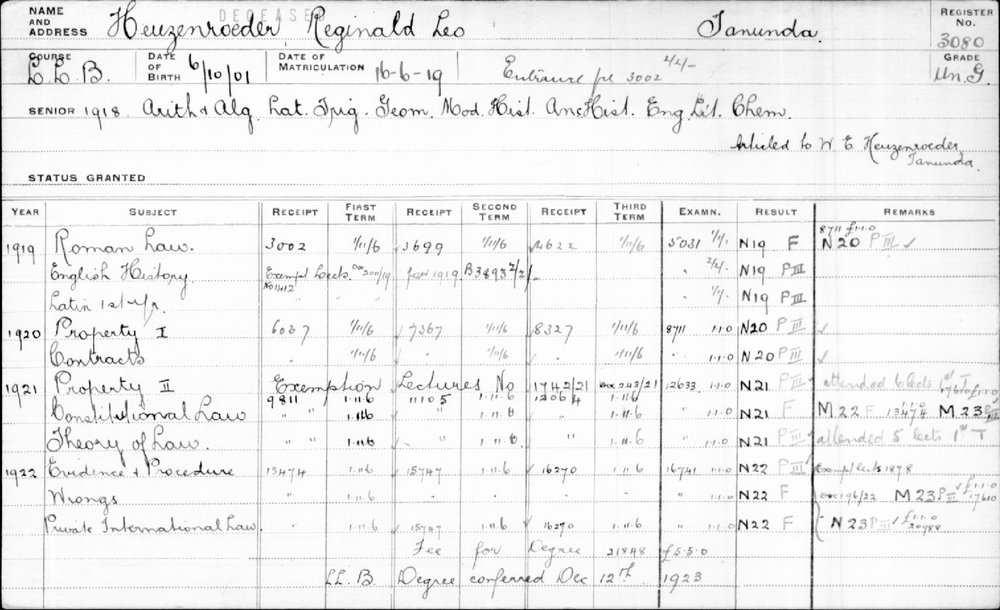 DECEASED
NAME AND ADDRESS Heuzenroeder, Reginald Leo Tanunda.
REGISTER No. 3080
COURSE L L. B. DATE OF BIRTH 6/10/01 DATE OF MATRICULATION 16-6-19 Entrance pr 3002 2/2/- GRADE Un. G.
SENIOR 1918. Arith & Alg. Lat. Trig. Geom. Mod. Hist. Anc. Hist. Eng. Lit. Chem.
Articled to W E Heuzenroeder
Tanunda.
STATUS GRANTED
YEAR SUBJECT RECEIPT FIRST TERM RECEIPT SECOND TERM RECEIPT THIRD TERM EXAMN. RESULT REMARKS
8711 £1.1.0
1919 Roman Law. 3002 1/11/6 3699 1/11/6 4622 1/11/6 5031 1/1/. N19 F N20 P III ✓
English History Exempt Lects. Dec 200/19 for 1919 B3893 2/2/- " 2/2/- N19 P III
No 1412
Latin 1st yr. " " " " " 1/1/. N19 P III
1920 Property I 6027 1/11/6 7367 1/11/6 8327 1/11/6 8711 1.1.0 N20 P III ✓
Contracts " 1/11/6 " 1/11/6 " 1/11/6 " 1.1.0 N20 P III ✓
1921 Property II Exemption Lectures No 1742/21 Dec 243/21 12633 1.1.0 N21 P III attended 6 lects 1st T
9811 1.11.6 11105 1.11.6 12064 1.11.6 17610 £1.1.0
Constitutional Law " " 1.11.6 " " 1.11.6 " 1.11.6 " 1.1.0 N21 F M 22 F 13474 1.1.0 M 23 P III
Theory of Law. " " 1.11.6 " " 1.11.6 " 1.11.6 " 1.1.0 N21 P III attended 5 lects 1st T
1922 Evidence & Procedure 13474 1.11.6 15747 1.11.6 16270 1.11.6 16741 1.1.0 N22 P III Exempt lects 1878
Wrongs " 1.11.6 " " " " " 1.1.0 N22 F Dec 196/22 M 23 P III £1.1.0 17610
Private International Law. " 1.11.6 15747 1.11.6 16270 1.11.6 " 1.1.0 N22 F N23 P III £1.1.0 20988
Fee for Degree 21848 £5.5.0
LL. B Degree conferred Dec 12th 1923